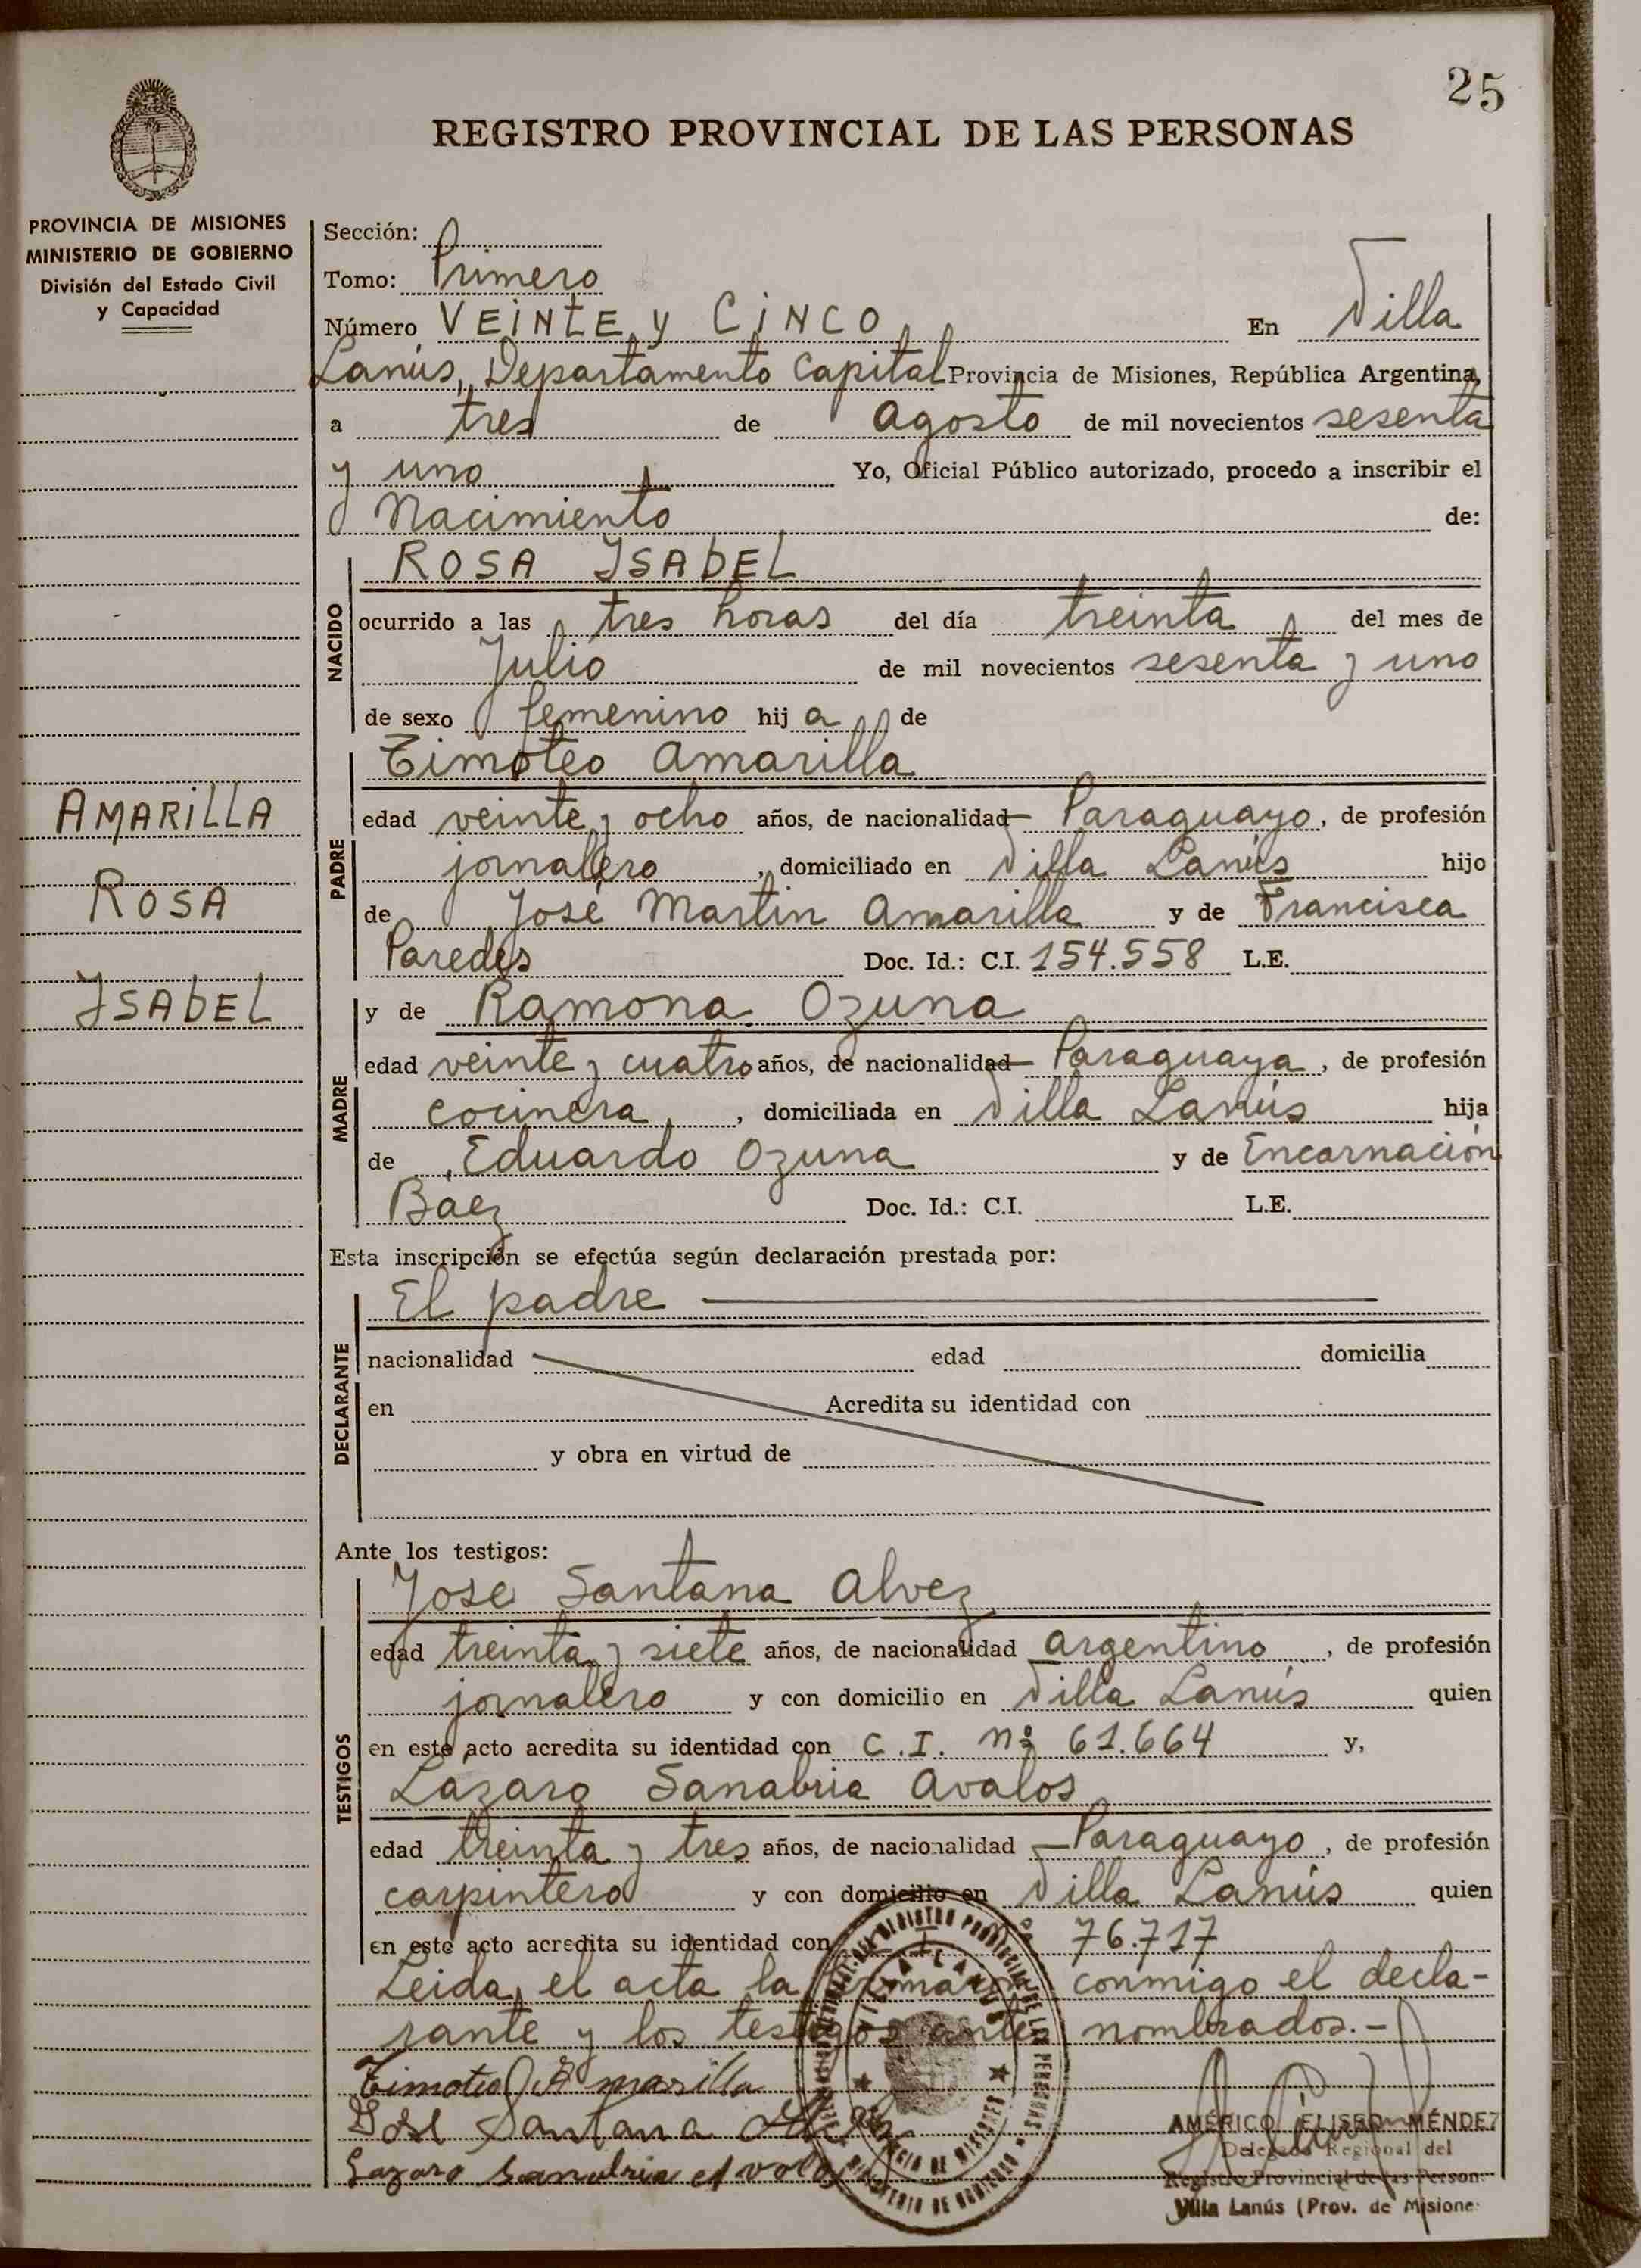 25
REGISTRO PROVINCIAL DE LAS PERSONAS
PROVINCIA DE MISIONES
MINISTERIO DE GOBIERNO
División del Estado Civil
y Capacidad
Sección:
Tomo: Primero
Número VEINTE y CINCO En Villa
Lanús, Departamento Capital Provincia de Misiones, República Argentina,
a tres de agosto de mil novecientos sesenta
y uno Yo, Oficial Público autorizado, procedo a inscribir el
Nacimiento de:
NACIDO
ROSA ISABEL
ocurrido a las tres horas del día treinta del mes de
Julio de mil novecientos sesenta y uno
de sexo femenino hija de
AMARILLA
ROSA
ISABEL
PADRE
Timoteo Amarilla
edad veinte y ocho años, de nacionalidad Paraguayo, de profesión
jornalero, domiciliado en Villa Lanús hijo
de José Martin Amarilla y de Francisca
Paredes Doc. Id.: C.I. 154.558 L.E.
MADRE
y de Ramona Ozuna
edad veinte y cuatro años, de nacionalidad Paraguaya, de profesión
cocinera, domiciliada en Villa Lanús hija
de Eduardo Ozuna y de Encarnación
Báez Doc. Id.: C.I. L.E.
Esta inscripción se efectúa según declaración prestada por:
DECLARANTE
El padre
nacionalidad edad domicilia
en Acredita su identidad con
y obra en virtud de
Ante los testigos:
TESTIGOS
Jose Santana Alvez
edad treinta y siete años, de nacionalidad argentino, de profesión
jornalero y con domicilio en Villa Lanús quien
en este acto acredita su identidad con C.I. Nº 61.664 y,
Lazaro Sanabria Avalos
edad treinta y tres años, de nacionalidad Paraguayo, de profesión
carpintero y con domicilio en Villa Lanús quien
en este acto acredita su identidad con I. 76.717
Leida el acta la firman conmigo el decla-
rante y los testigos antes nombrados.-
Timoteo Amarilla
José Santana
Lazaro Sanabria
VILLA LANUS
AMÉRICO ELISEO MÉNDEZ
Delegado Regional del
Registro Provincial de las Person
Villa Lanús (Prov. de Misione